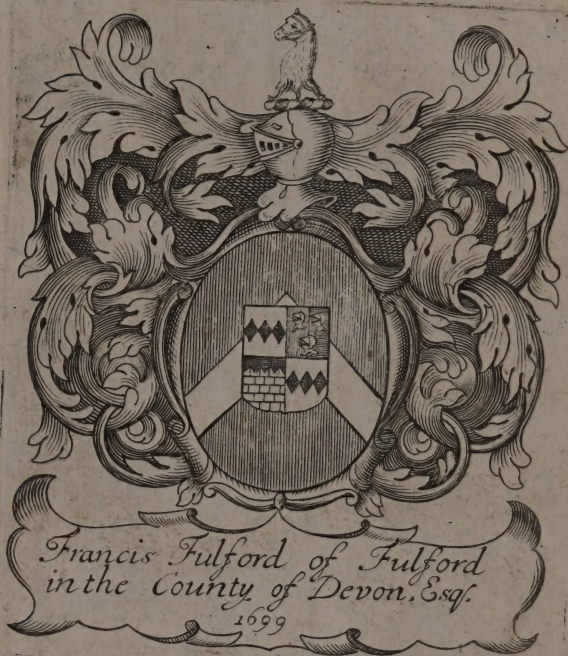 Francis Fulford of Fulford
in the County of Devon, Esqr.
1699